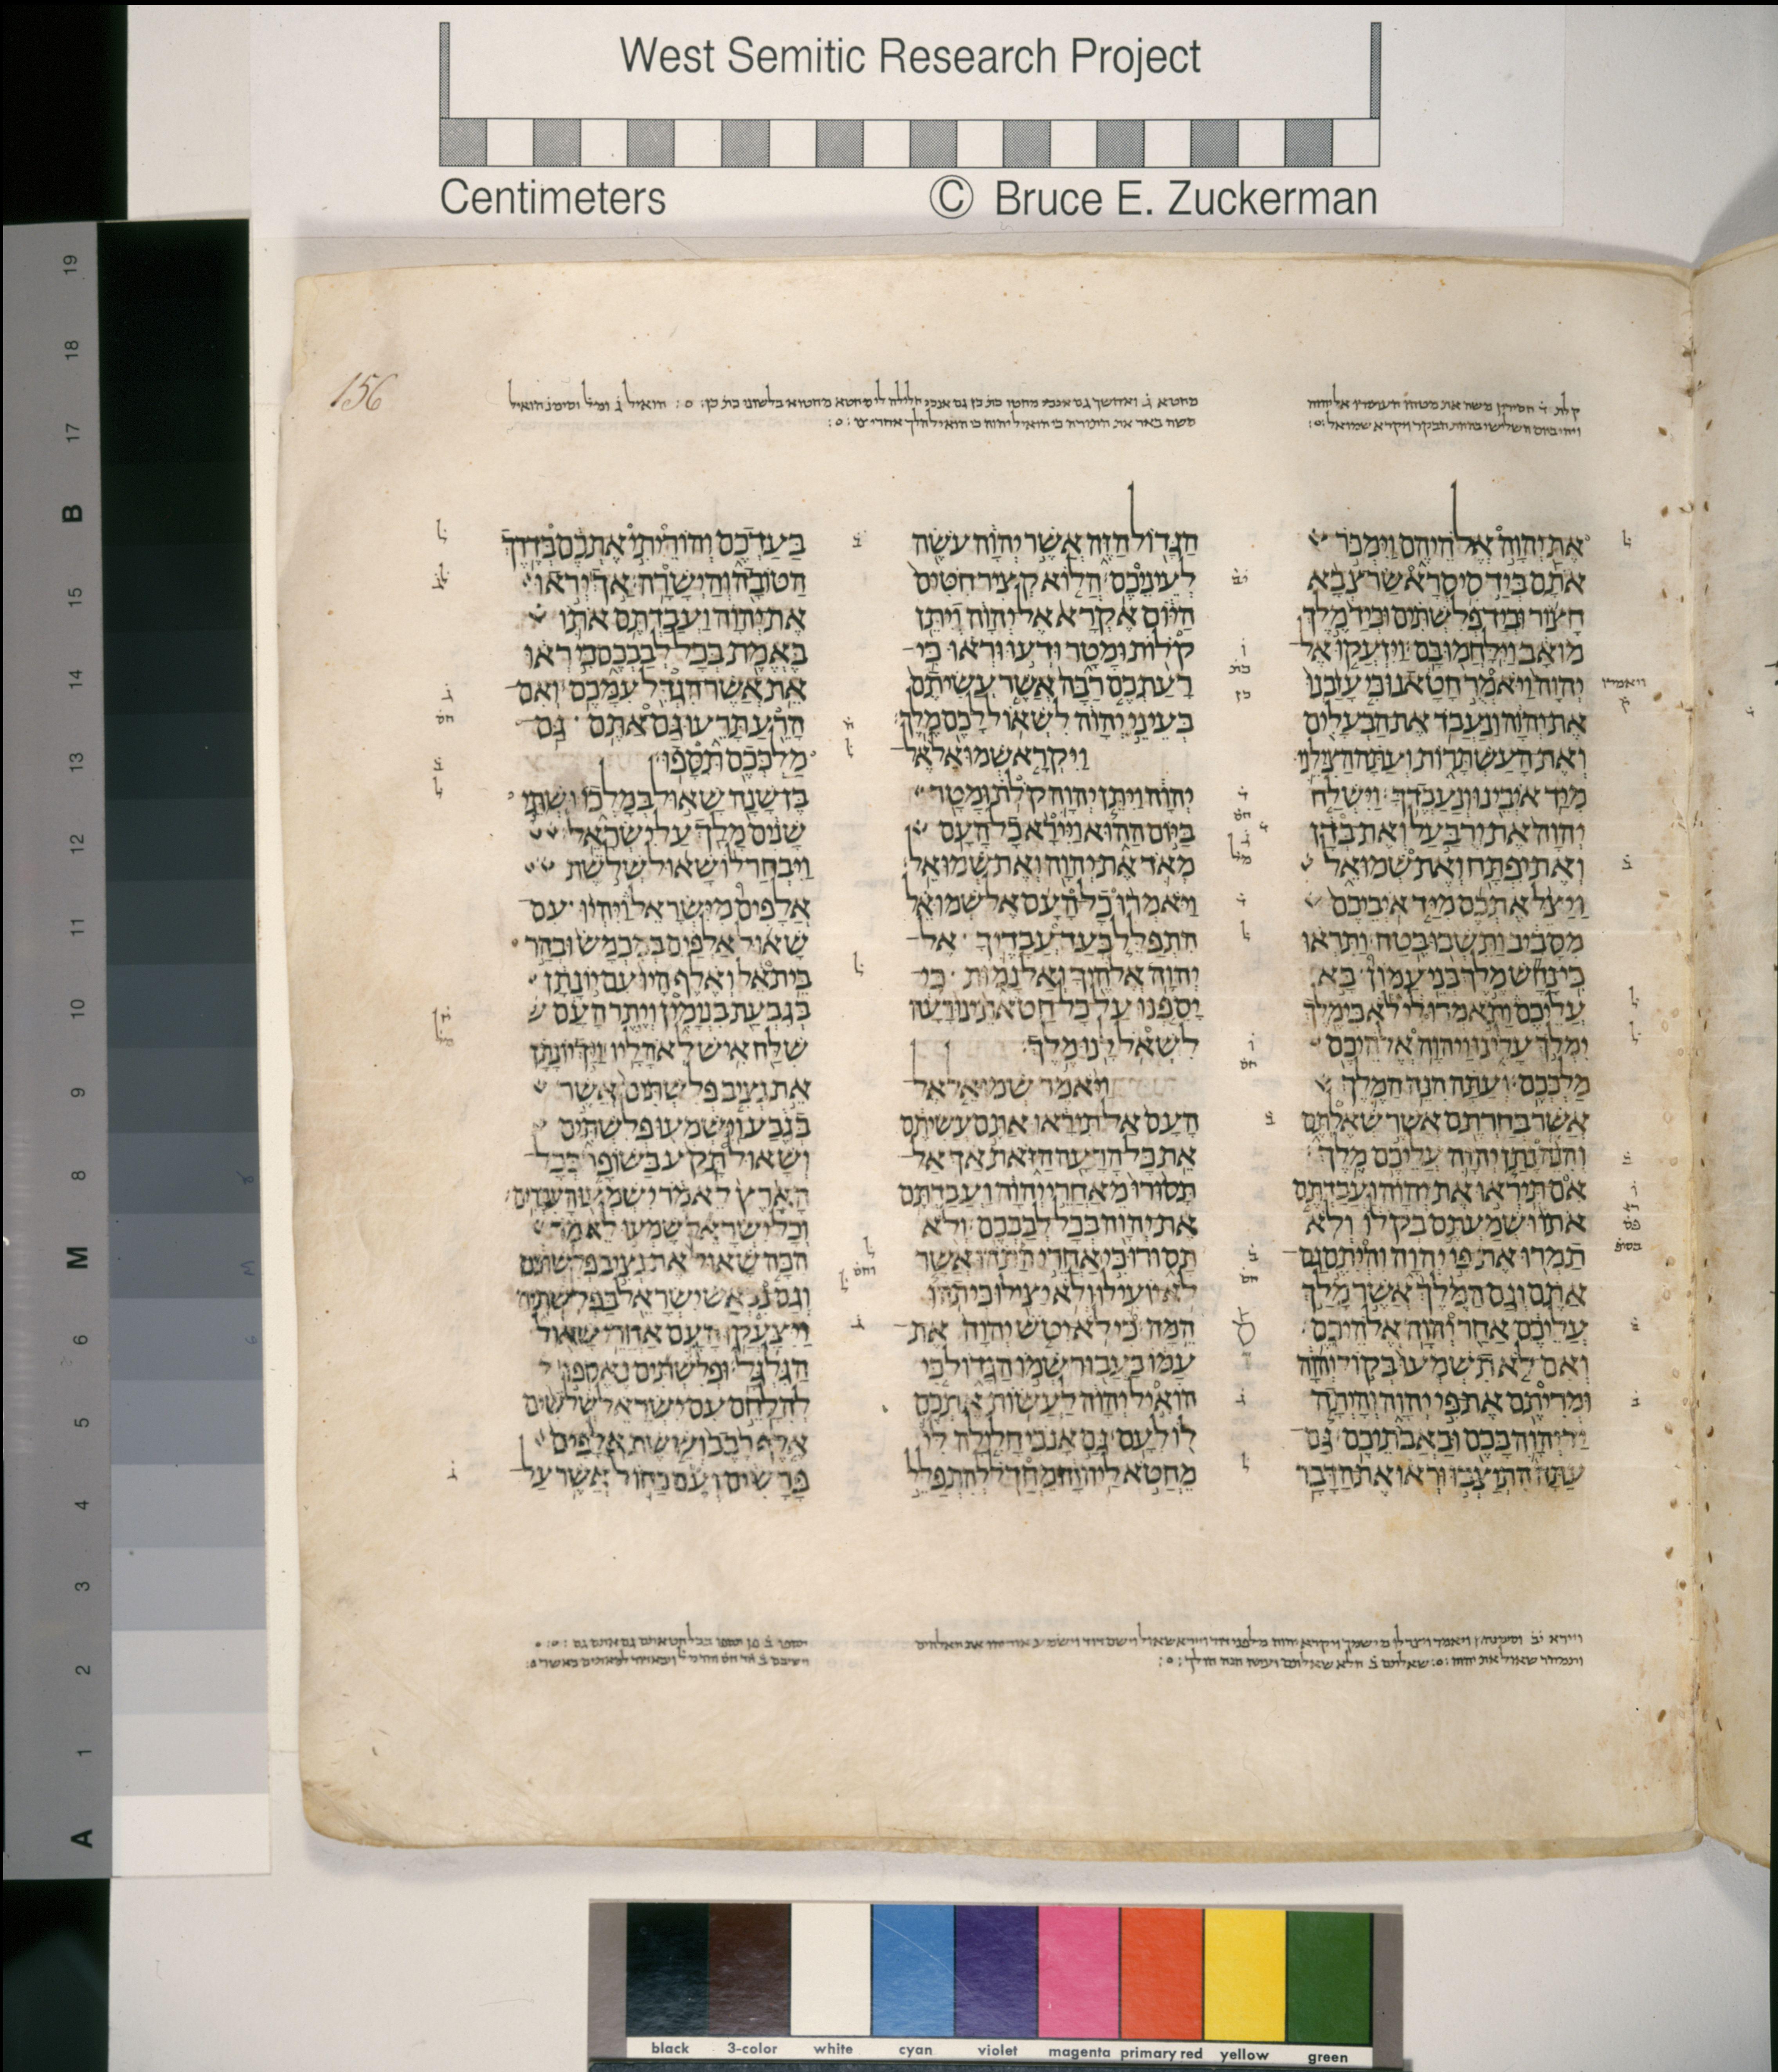 West Semitic Research Project
Centimeters © Bruce E. Zuckerman
156
את יהוה אלהיהם וימכר
אתם ביד סיסרא שר צבא
חצור וביד פלשתים וביד מלך
מואב וילחמו בם ויזעקו אל
יהוה ויאמר חטאנו כי עזבנו
את יהוה ונעבד את הבעלים
ואת העשתרות ועתה הצילנו
מיד איבינו ונעבדך וישלח
יהוה את ירבעל ואת בדן
ואת יפתח ואת שמואל
ויצל אתכם מיד איביכם
מסביב ותשבו בטח ותראו
כי נחש מלך בני עמון בא
עליכם ותאמרו לי לא כי מלך
ימלך עלינו ויהוה אלהיכם
מלככם ועתה הנה המלך
אשר בחרתם אשר שאלתם
והנה נתן יהוה עליכם מלך
אם תיראו את יהוה ועבדתם
אתו ושמעתם בקלו ולא
תמרו את פי יהוה והיתם גם
אתם וגם המלך אשר מלך
עליכם אחר יהוה אלהיכם
ואם לא תשמעו בקול יהוה
ומריתם את פי יהוה והיתה
יד יהוה בכם ובאבתיכם גם
עתה התיצבו וראו את הדבר
הגדול הזה אשר יהוה עשה
לעיניכם הלוא קציר חטים
היום אקרא אל יהוה ויתן
קלות ומטר ודעו וראו כי
רעתכם רבה אשר עשיתם
בעיני יהוה לשאול לכם מלך
ויקרא שמואל אל
יהוה ויתן יהוה קלת ומטר
ביום ההוא ויירא כל העם
מאד את יהוה ואת שמואל
ויאמרו כל העם אל שמואל
התפלל בעד עבדיך אל
יהוה אלהיך ואל נמות כי
יספנו על כל חטאתינו רעה
לשאל לנו מלך
ויאמר שמואל אל
העם אל תיראו אתם עשיתם
את כל הרעה הזאת אך אל
תסורו מאחרי יהוה ועבדתם
את יהוה בכל לבבכם ולא
תסורו כי אחרי התהו אשר
לא יועילו ולא יצילו כי תהו
המה כי לא יטש יהוה את
עמו בעבור שמו הגדול כי
הואיל יהוה לעשות אתכם
לו לעם גם אנכי חלילה לי
מחטא ליהוה מחדל להתפלל
בעדכם והוריתי אתכם בדרך
הטובה והישרה אך יראו
את יהוה ועבדתם אתו
באמת בכל לבבכם כי ראו
את אשר הגדל עמכם ואם
הרע תרעו גם אתם גם
מלככם תספו
בן שנה שאול במלכו ושתי
שנים מלך על ישראל
ויבחר לו שאול שלשת
אלפים מישראל ויהיו עם
שאול אלפים במכמש ובהר
בית אל ואלף היו עם יונתן
בגבעת בנימין ויתר העם
שלח איש לאהליו ויך יונתן
את נציב פלשתים אשר
בגבע וישמעו פלשתים
ושאול תקע בשופר בכל
הארץ לאמר ישמעו העברים
וכל ישראל שמעו לאמר
הכה שאול את נציב פלשתים
וגם נבאש ישראל בפלשתים
ויצעקו העם אחרי שאול
הגלגל ופלשתים נאספו
להלחם עם ישראל שלשים
אלף רכב וששת אלפים
פרשים ועם כחול אשר על
19
18
17
B
15
14
13
12
11
10
9
8
M
6
5
4
3
2
1
A
black 3-color white cyan violet magenta primary red yellow green